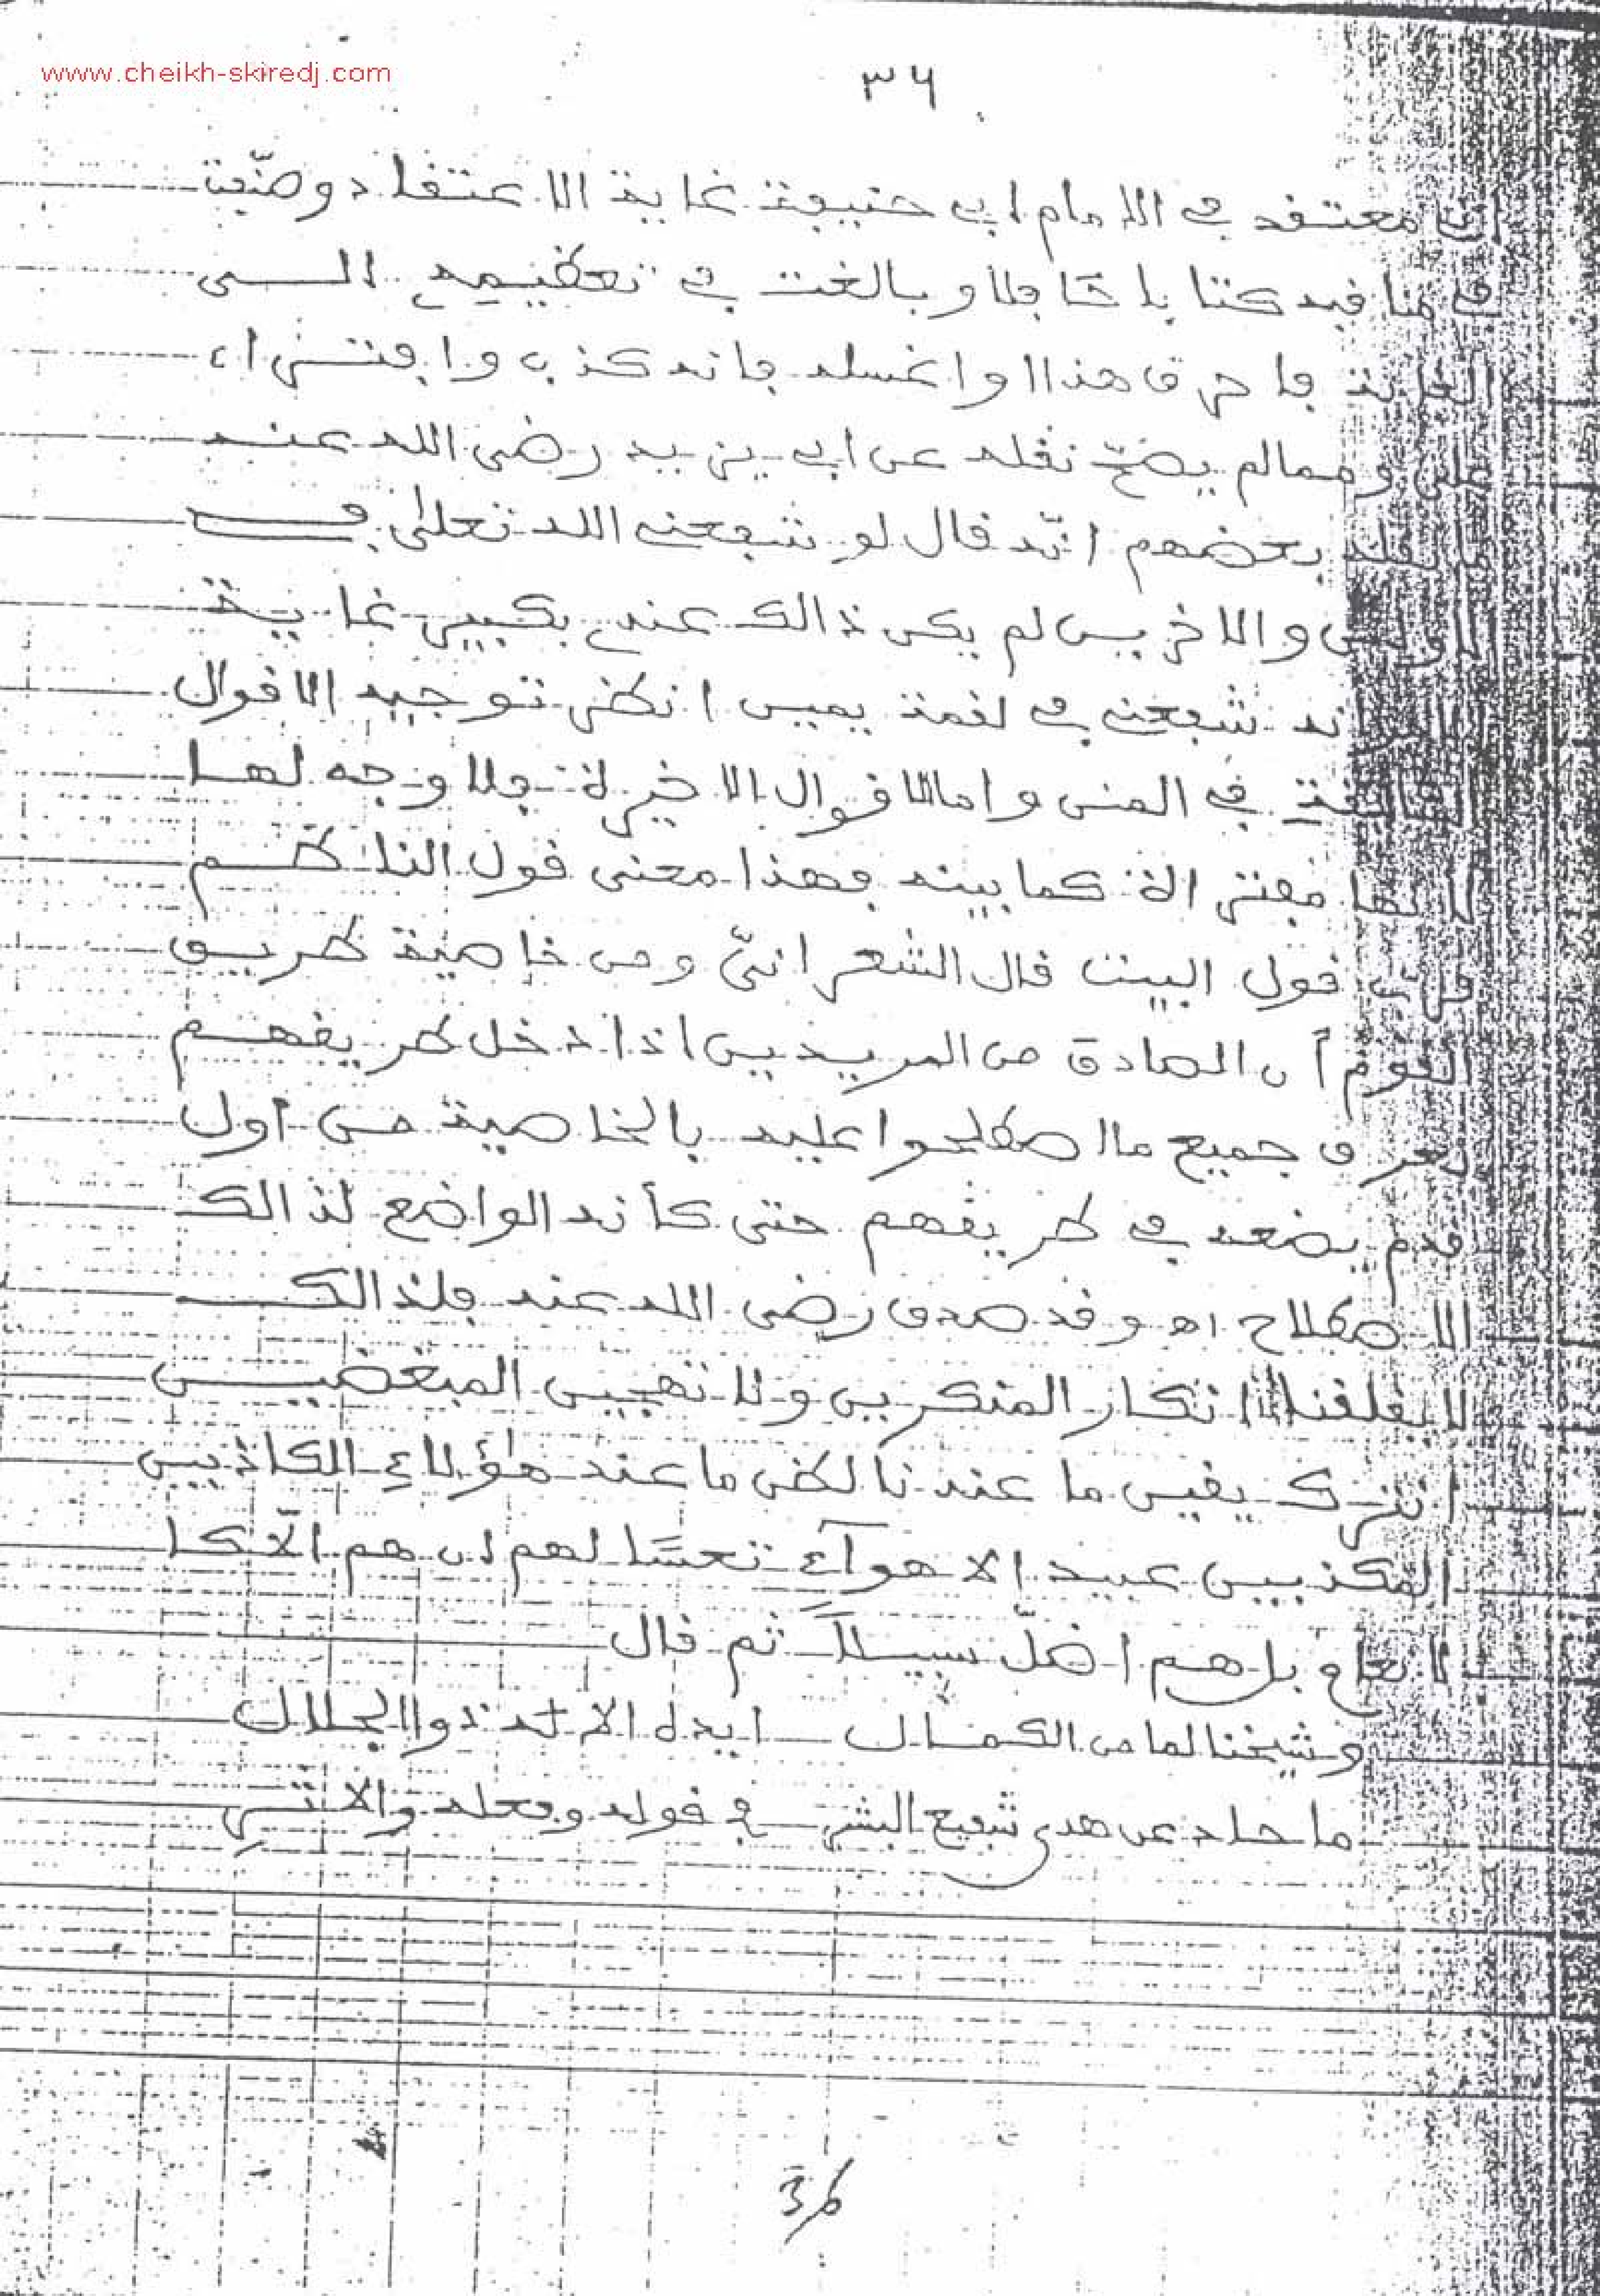 www.cheikh-skiredj.com
٣٦
معتقد في الامام ابي حنيفة غاية الاعتقاد وصنّفت
كتابا حافلا وبالغت في تعظيمه الى
فاحرق هذا واغسله فانه كذب وافتراء
ومما لم يصحّ نقله عن ابي يزيد رضى الله عنه
بعضهم انّه قال لو شفعني الله تعلى في
والاخرين لم يكن ذالك عندي بكبير غاية
انه شفعني في لقمة يمين انظر توجيه الاقوال
في المنى واما الاقوال الاخيرة فلا وجه لها
لانها مفتراة كما بينه فهذا معنى قول الناظم
قول البيت قال الشعرانيّ ومن خاصية طريق
القوم أن الصادق من المريدين اذا دخل طريقهم
يعرف جميع ما اصطلحوا عليه بالخاصية من أول
قدم يضعه في طريقهم حتى كأنه الواضع لذالك
الاصطلاح اه وقد صدق رضى الله عنه فلذالك
لا يقلقنا انكار المنكرين ولا تهجين المبغضين
انترك يقين ما عندنا لظن ما عند هؤلاء الكاذبين
المكذبين عبيد الاهوآء تعسًا لهم ان هم الّا كا
لانعام بل هم اضلّ سبيلاً ثم قال
وشيخنا لما من الكمال ايده الاله ذوا الجلال
ما حاد عن هدى شفيع البشر في قوله وفعله والاثر
36